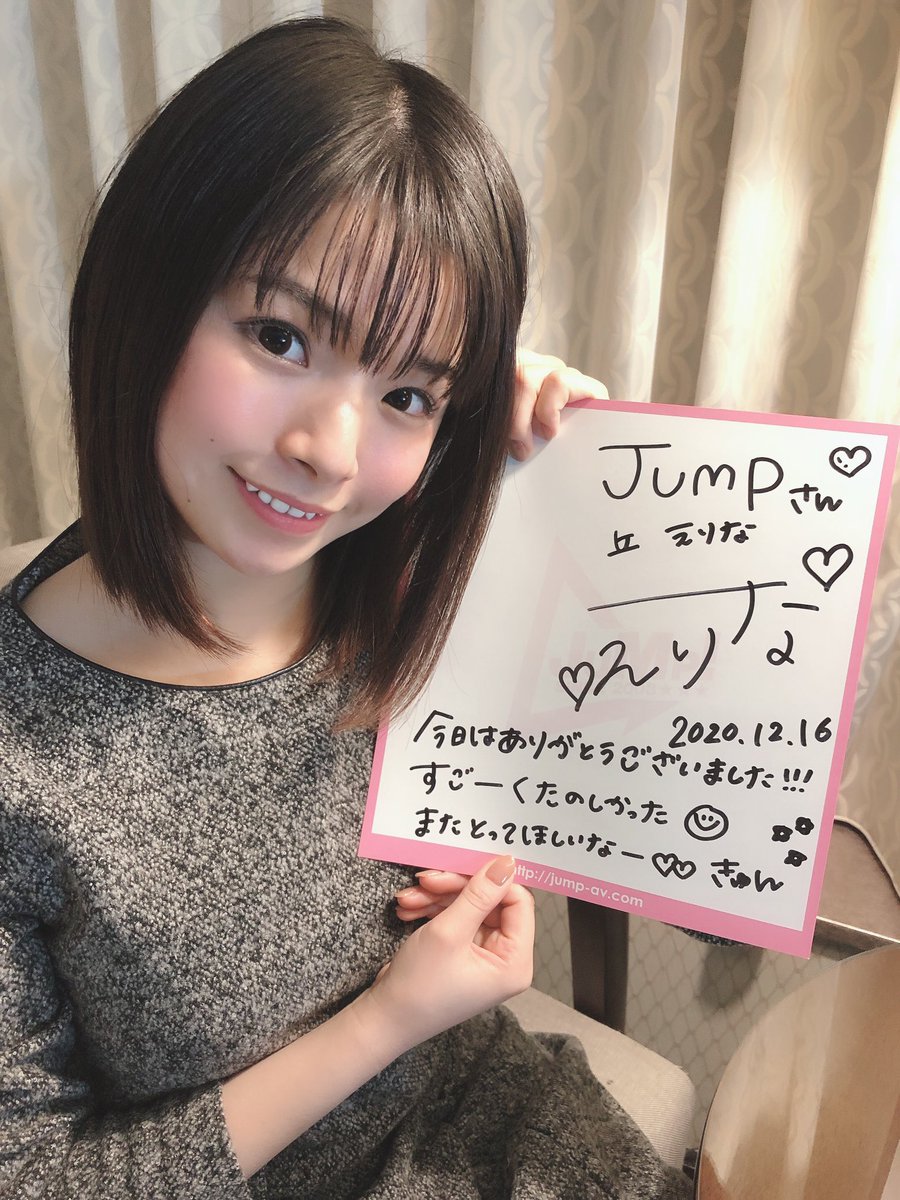 Jumpさん
丘 えりな
えりな
2020.12.16
今日はありがとうございました!!!
すごーくたのしかった
またとってほしいなー
きゅん
http://jump-av.com